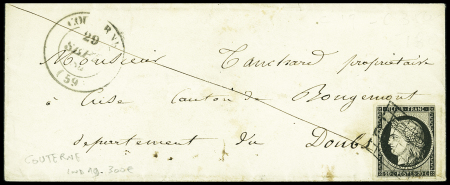 COU
29
59
Monsieur Tanchard propriétaire
à Cuse Canton de Bougemont
département du Doubs
REPUB. FRANC.
COUTERNE